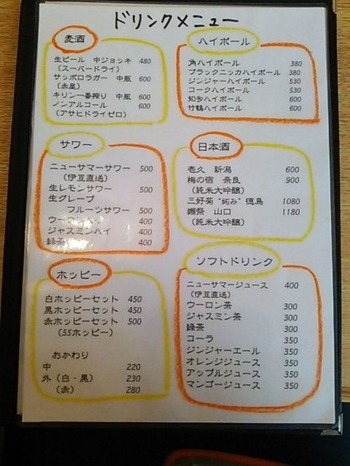 ドリンクメニュー
麦酒
生ビール 中ジョッキ 480
(スーパードライ)
サッポロラガー 中瓶 600
(赤星)
キリン一番搾り 中瓶 600
ノンアルコール 600
(アサヒドライゼロ)
ハイボール
角ハイボール 380
ブラックニッカハイボール 380
ジンジャーハイボール 530
コークハイボール 530
知多ハイボール 600
竹鶴ハイボール 600
サワー
ニューサマーサワー 500
(伊豆直送)
生レモンサワー 500
生グレープ
フルーツサワー 500
ウーロンハイ 400
ジャスミンハイ 400
緑茶 400
日本酒
壱久 新潟 600
梅の宿 奈良 900
(純米大吟醸)
三好菊 徳島 1080
獺祭 山口 1180
(純米大吟醸)
ホッピー
白ホッピーセット 450
黒ホッピーセット 450
赤ホッピーセット 500
(55ホッピー)
おかわり
中 220
外(白・黒) 230
(赤) 280
ソフトドリンク
ニューサマージュース 400
(伊豆直送)
ウーロン茶 300
ジャスミン茶 300
緑茶 300
コーラ 350
ジンジャーエール 350
オレンジジュース 350
アップルジュース 350
マンゴージュース 350